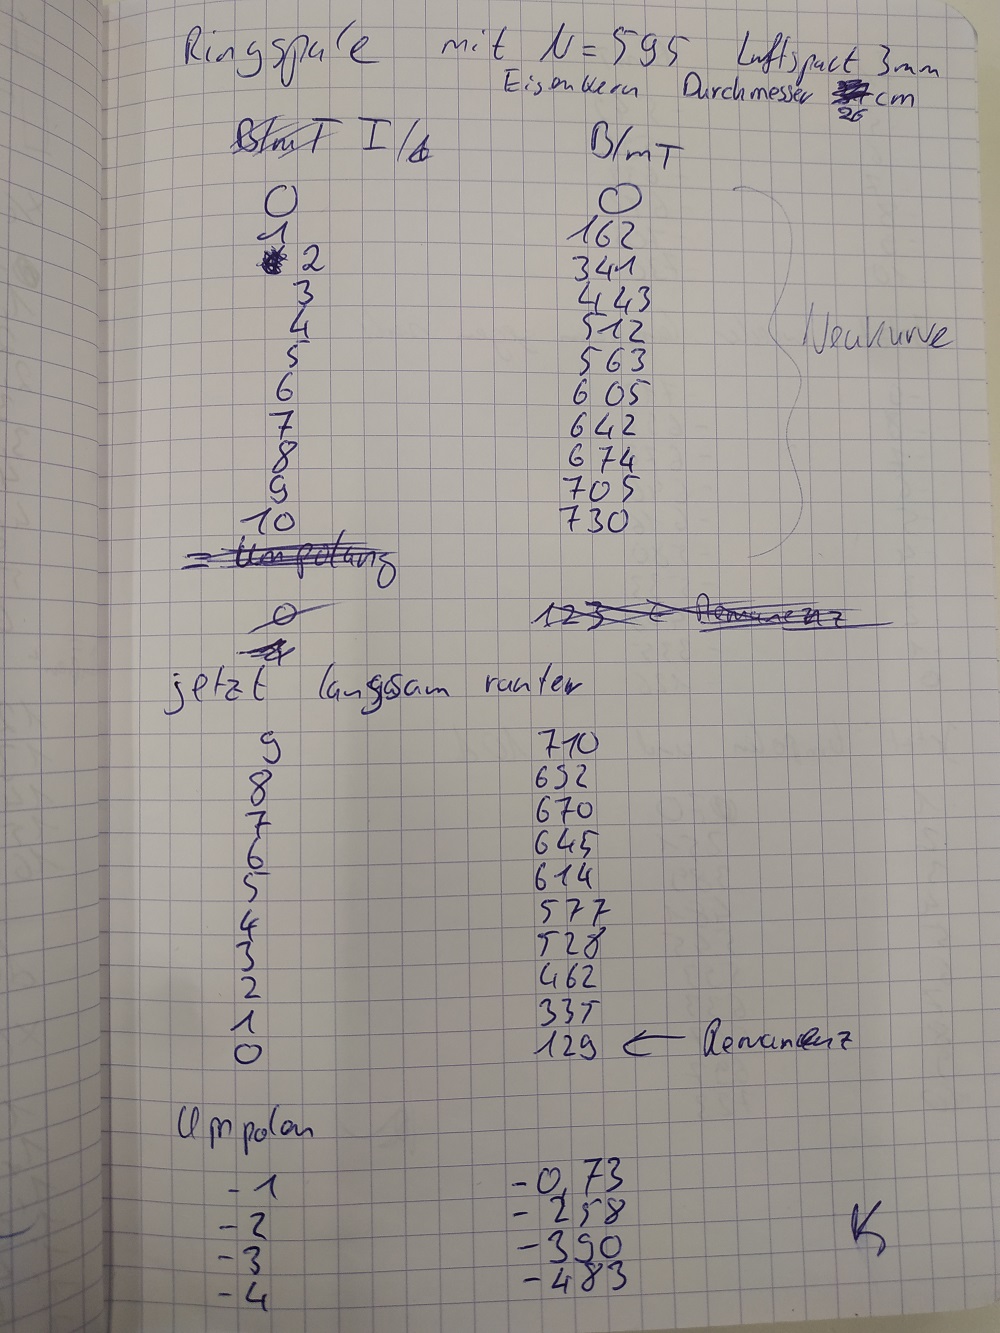 Ringspule mit N=595 Luftspalt 3mm
Eisenkern Durchmesser 26 cm
B/mT I/A B/mT
0 0
1 162
2 341
3 443
4 512
5 563
6 605
7 642
8 674
9 705
10 730
Neukurve
= Umpolung
0 123 ← Remanenz
jetzt langsam runter
9 710
8 692
7 670
6 645
5 614
4 577
3 528
2 462
1 335
0 129 ← Remanenz
Umpolen
-1 -0,73
-2 -258
-3 -390
-4 -483